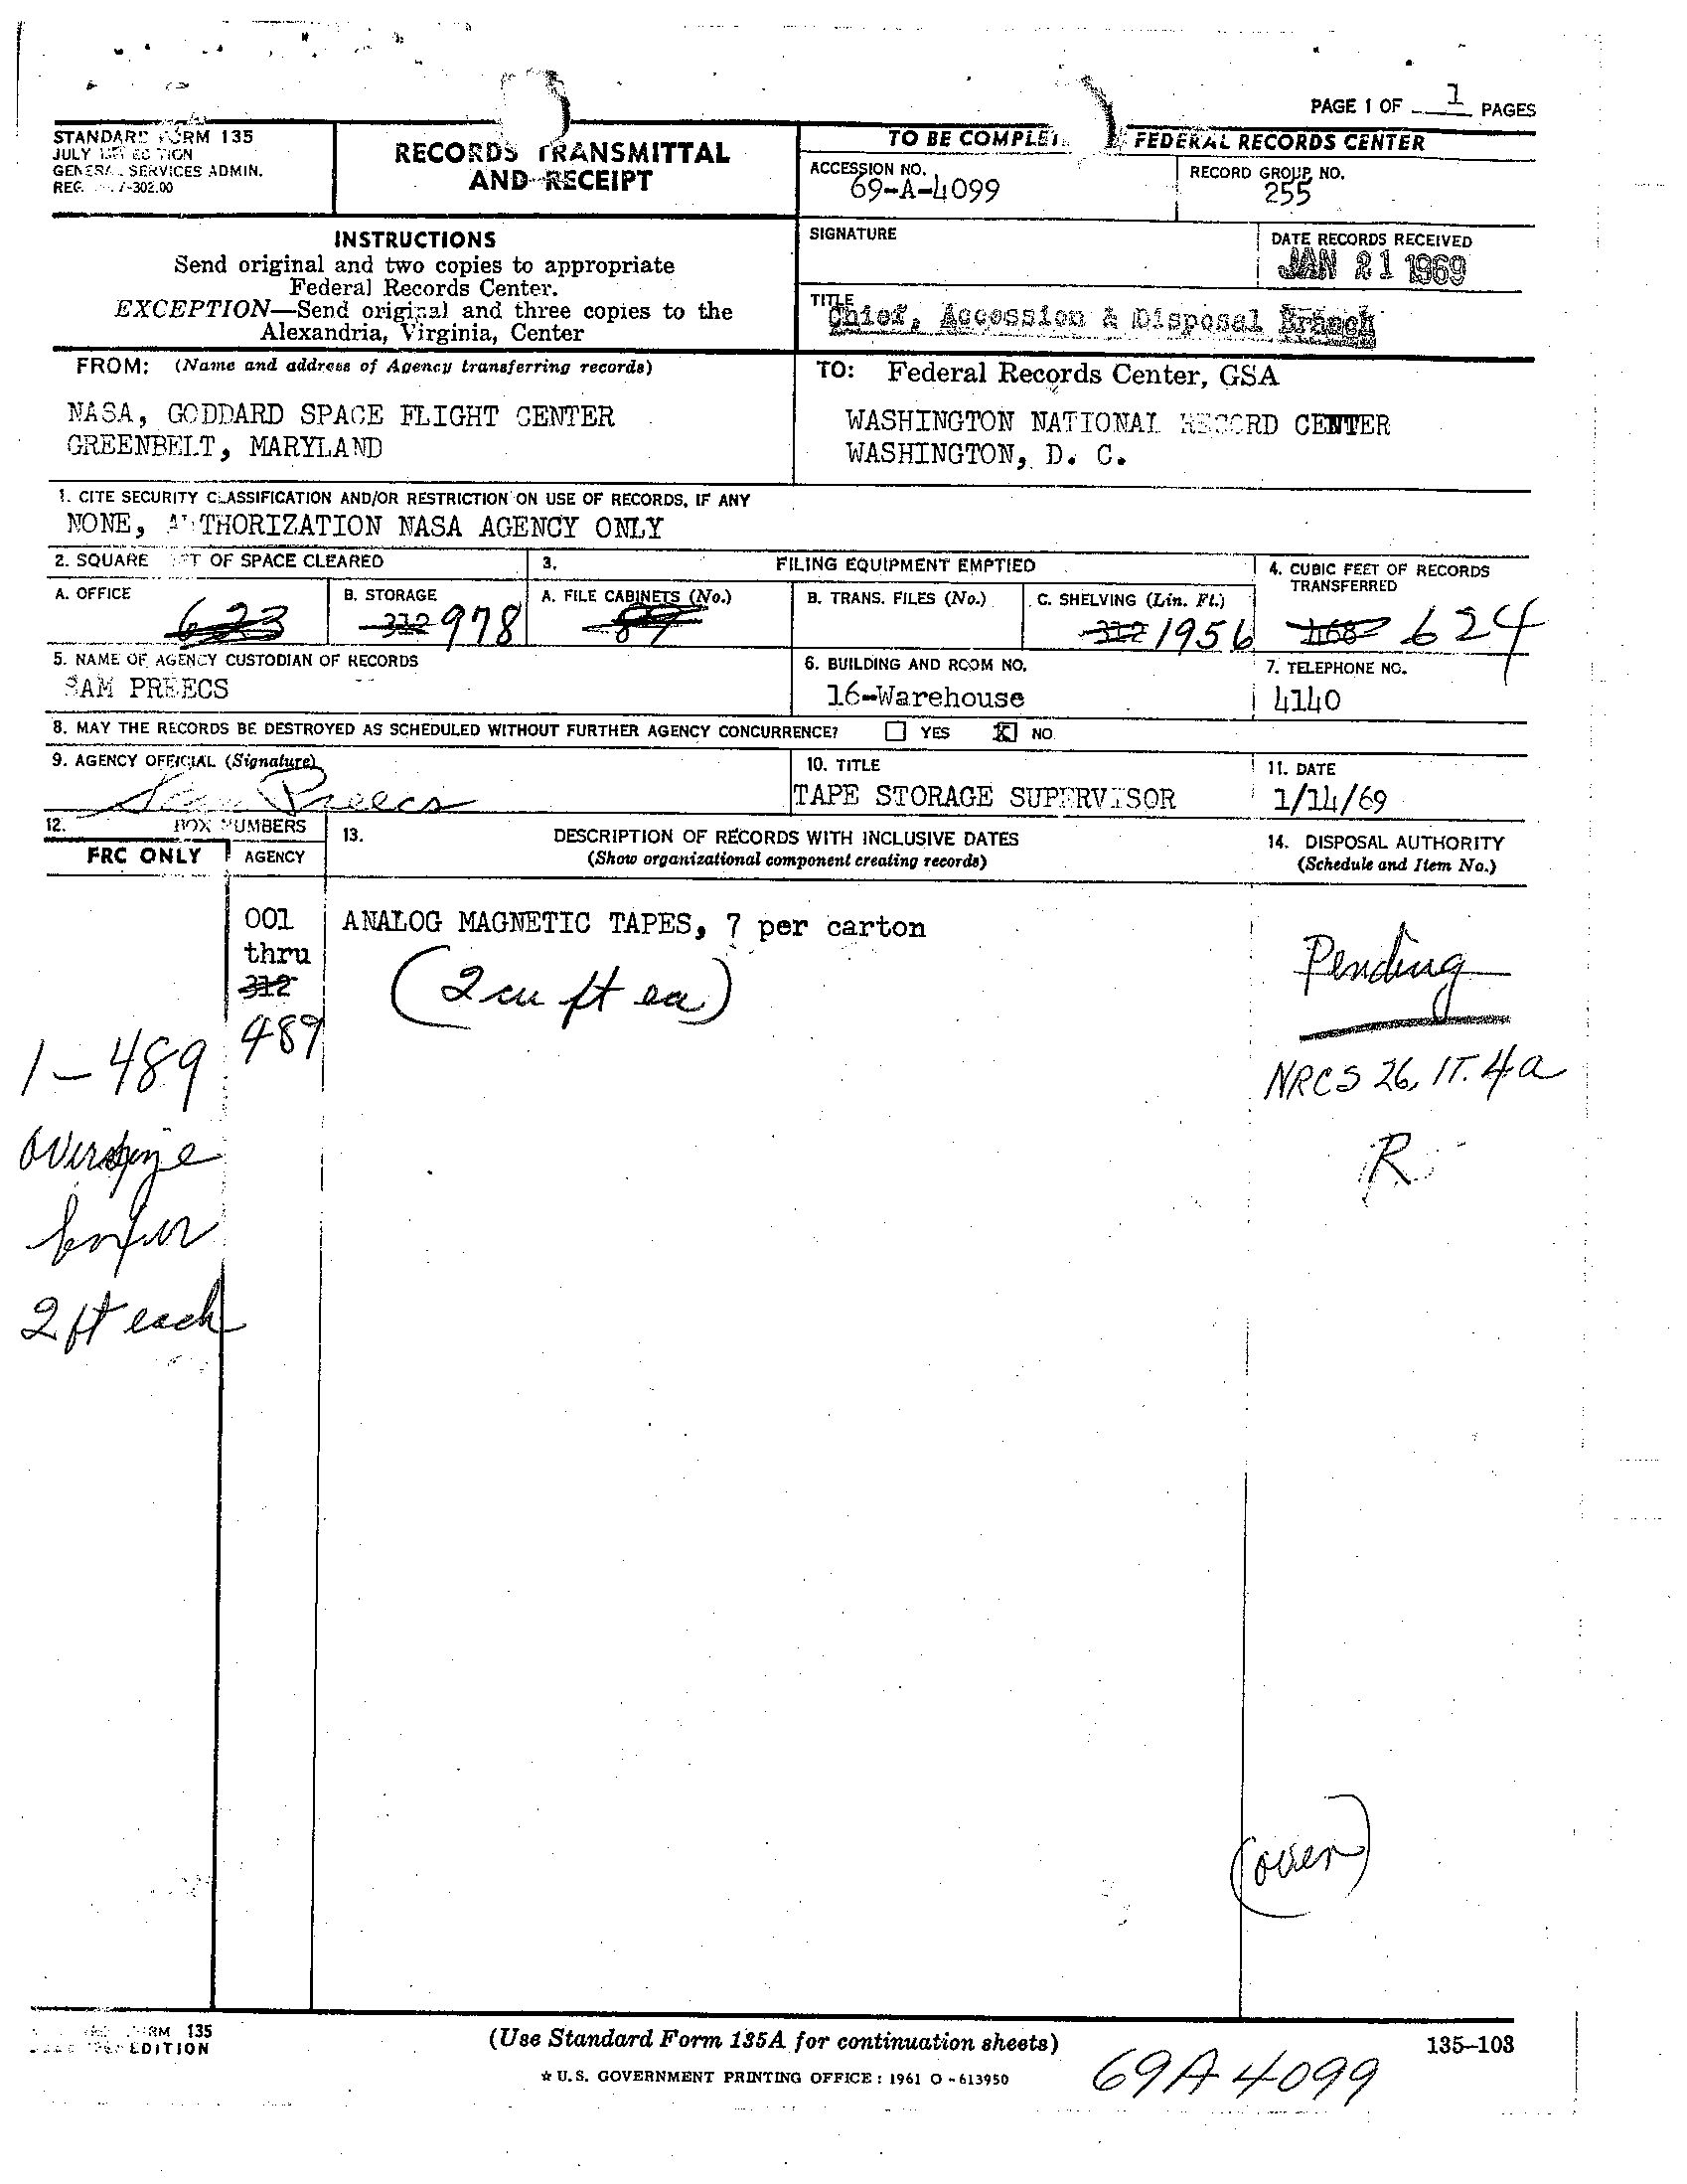 PAGE 1 OF 1 PAGES
STANDARD FORM 135
JULY
GENERAL SERVICES ADMIN.
REG.
RECORDS TRANSMITTAL
AND RECEIPT
TO BE COMPLE FEDERAL RECORDS CENTER
ACCESSION NO.
69-A-4099
RECORD GROUP NO.
255
INSTRUCTIONS
Send original and two copies to appropriate
Federal Records Center.
EXCEPTION—Send original and three copies to the
Alexandria, Virginia, Center
SIGNATURE
DATE RECORDS RECEIVED
JAN 21 1969
TITLE
Chief, Accession & Disposal Branch
FROM: (Name and address of Agency transferring records)
NASA, GODDARD SPACE FLIGHT CENTER
GREENBELT, MARYLAND
TO: Federal Records Center, GSA
WASHINGTON NATIONAL RECORD CENTER
WASHINGTON, D. C.
1. CITE SECURITY CLASSIFICATION AND/OR RESTRICTION ON USE OF RECORDS, IF ANY
NONE, AUTHORIZATION NASA AGENCY ONLY
2. SQUARE OF SPACE CLEARED
3. FILING EQUIPMENT EMPTIED
4. CUBIC FEET OF RECORDS
TRANSFERRED
A. OFFICE
623
B. STORAGE
312 978
A. FILE CABINETS (No.)
89
B. TRANS. FILES (No.)
C. SHELVING (Lin. Ft.)
312 1956
1168 624
5. NAME OF AGENCY CUSTODIAN OF RECORDS
SAM PREECS
6. BUILDING AND ROOM NO.
16-Warehouse
7. TELEPHONE NO.
4140
8. MAY THE RECORDS BE DESTROYED AS SCHEDULED WITHOUT FURTHER AGENCY CONCURRENCE? YES X NO
9. AGENCY OFFICIAL (Signature)
Sam Preecs
10. TITLE
TAPE STORAGE SUPERVISOR
11. DATE
1/14/69
12. BOX NUMBERS
FRC ONLY AGENCY
13. DESCRIPTION OF RECORDS WITH INCLUSIVE DATES
(Show organizational component creating records)
14. DISPOSAL AUTHORITY
(Schedule and Item No.)
001
thru
312
489
ANALOG MAGNETIC TAPES, 7 per carton
(2 cu ft ea)
Pending
NRCS 26, IT. 4a
R
1-489
oversize
boxes
2 ft each
(over)
FORM 135
EDITION
(Use Standard Form 135A for continuation sheets)
135-103
☆ U.S. GOVERNMENT PRINTING OFFICE : 1961 O - 613950
69A4099